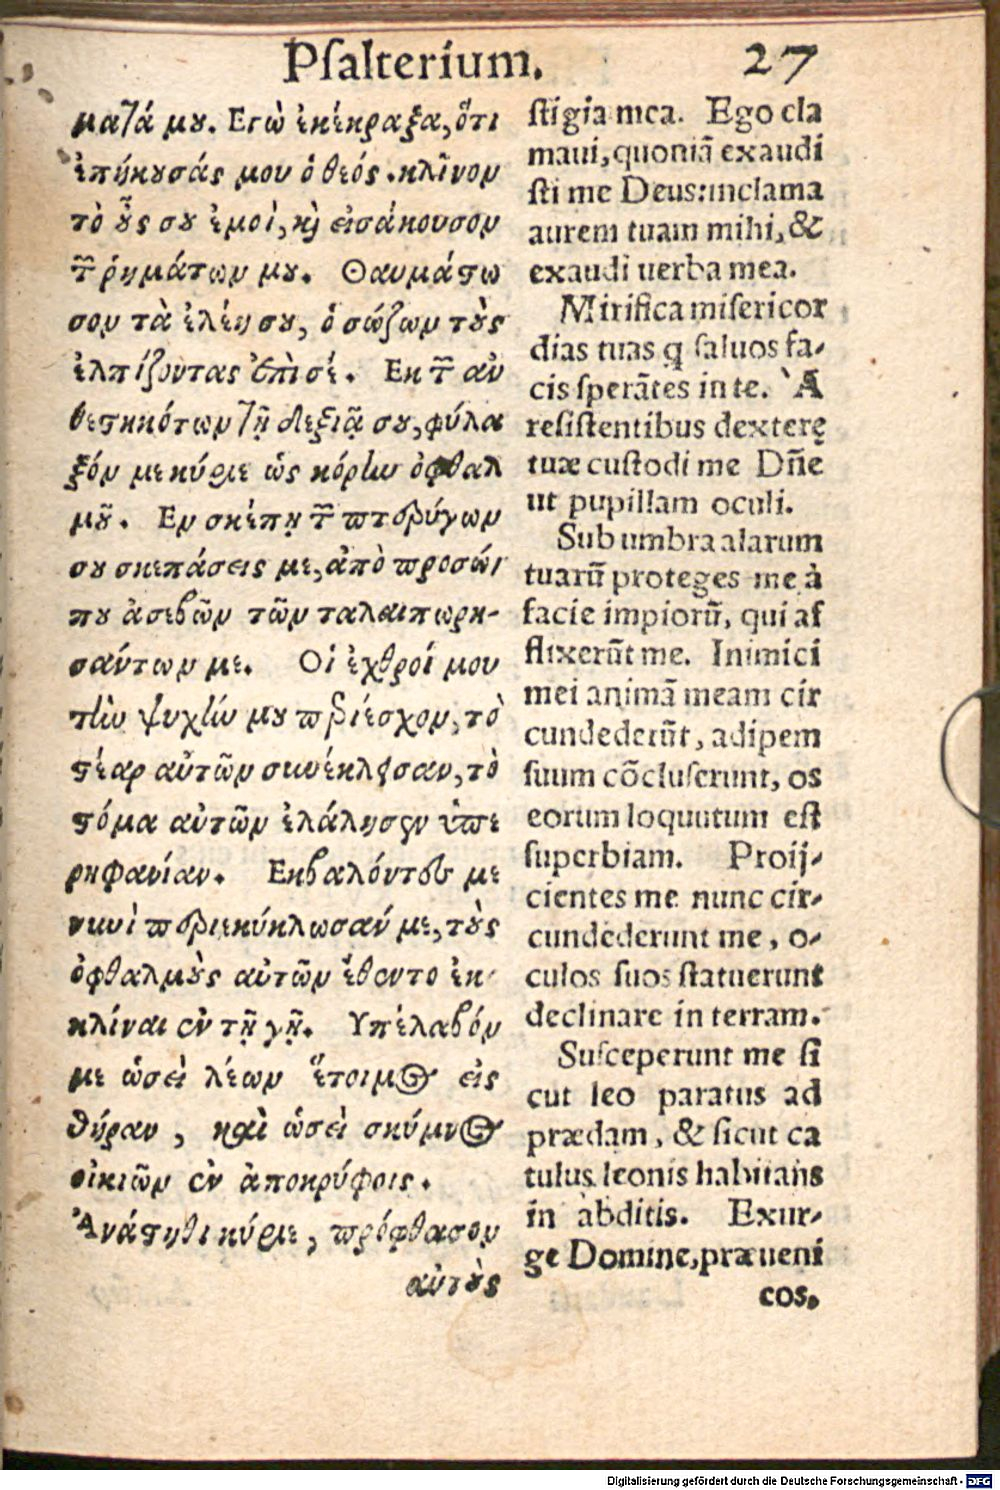 Psalterium. 27
ματά μου. Εγὼ ἐκέκραξα, ὅτι
ἐπήκουσάς μου ὁ θεός. κλῖνον
τὸ οὖς σου ἐμοὶ, καὶ εἰσάκουσον
τῶν ῥημάτων μου. Θαυμάστω
σον τὰ ἐλέη σου, ὁ σώζων τοὺς
ἐλπίζοντας ἐπὶ σέ. Εκ τῶν ἀν
θεστηκότων τῇ δεξιᾷ σου, φύλα
ξόν με κύριε ὡς κόρην ὀφθαλ
μοῦ. Εν σκέπῃ τῶν πτερύγων
σου σκεπάσεις με, ἀπὸ προσώ
που ἀσεβῶν τῶν ταλαιπωρη-
σάντων με. Οἱ ἐχθροί μου
τὴν ψυχήν μου περιέσχον, τὸ
στέαρ αὐτῶν συνέκλεισαν, τὸ
στόμα αὐτῶν ἐλάλησεν ὑπε
ρηφανίαν. Εκβαλόντες με
νυνὶ περιεκύκλωσάν με, τοὺς
ὀφθαλμοὺς αὐτῶν ἔθεντο ἐκ
κλίναι ἐν τῇ γῇ. Υπέλαβόν
με ὡσεὶ λέων ἕτοιμος εἰς
θήραν, καὶ ὡσεὶ σκύμνος
οἰκιῶν ἐν ἀποκρύφοις.
Ἀνάστηθι κύριε, πρόφθασον
αὐτοὺς
stigia mea. Ego cla
maui, quoniã exaudi
sti me Deus: inclama
aurem tuam mihi, &
exaudi uerba mea.
Mirifica misericor
dias tuas q saluos fa-
cis sperãtes in te. A
resistentibus dexterę
tuæ custodi me Dñe
ut pupillam oculi.
Sub umbra alarum
tuarũ proteges me à
facie impiorũ, qui af
flixerũt me. Inimici
mei animã meam cir
cundederũt, adipem
suum cõcluserunt, os
eorum loquutum est
superbiam. Proij-
cientes me nunc cir-
cundederunt me, o-
culos suos statuerunt
declinare in terram.
Susceperunt me si
cut leo paratus ad
prædam, & sicut ca
tulus leonis habitans
in abditis. Exur-
ge Domine, præueni
eos.
Digitalisierung gefördert durch die Deutsche Forschungsgemeinschaft - DFG